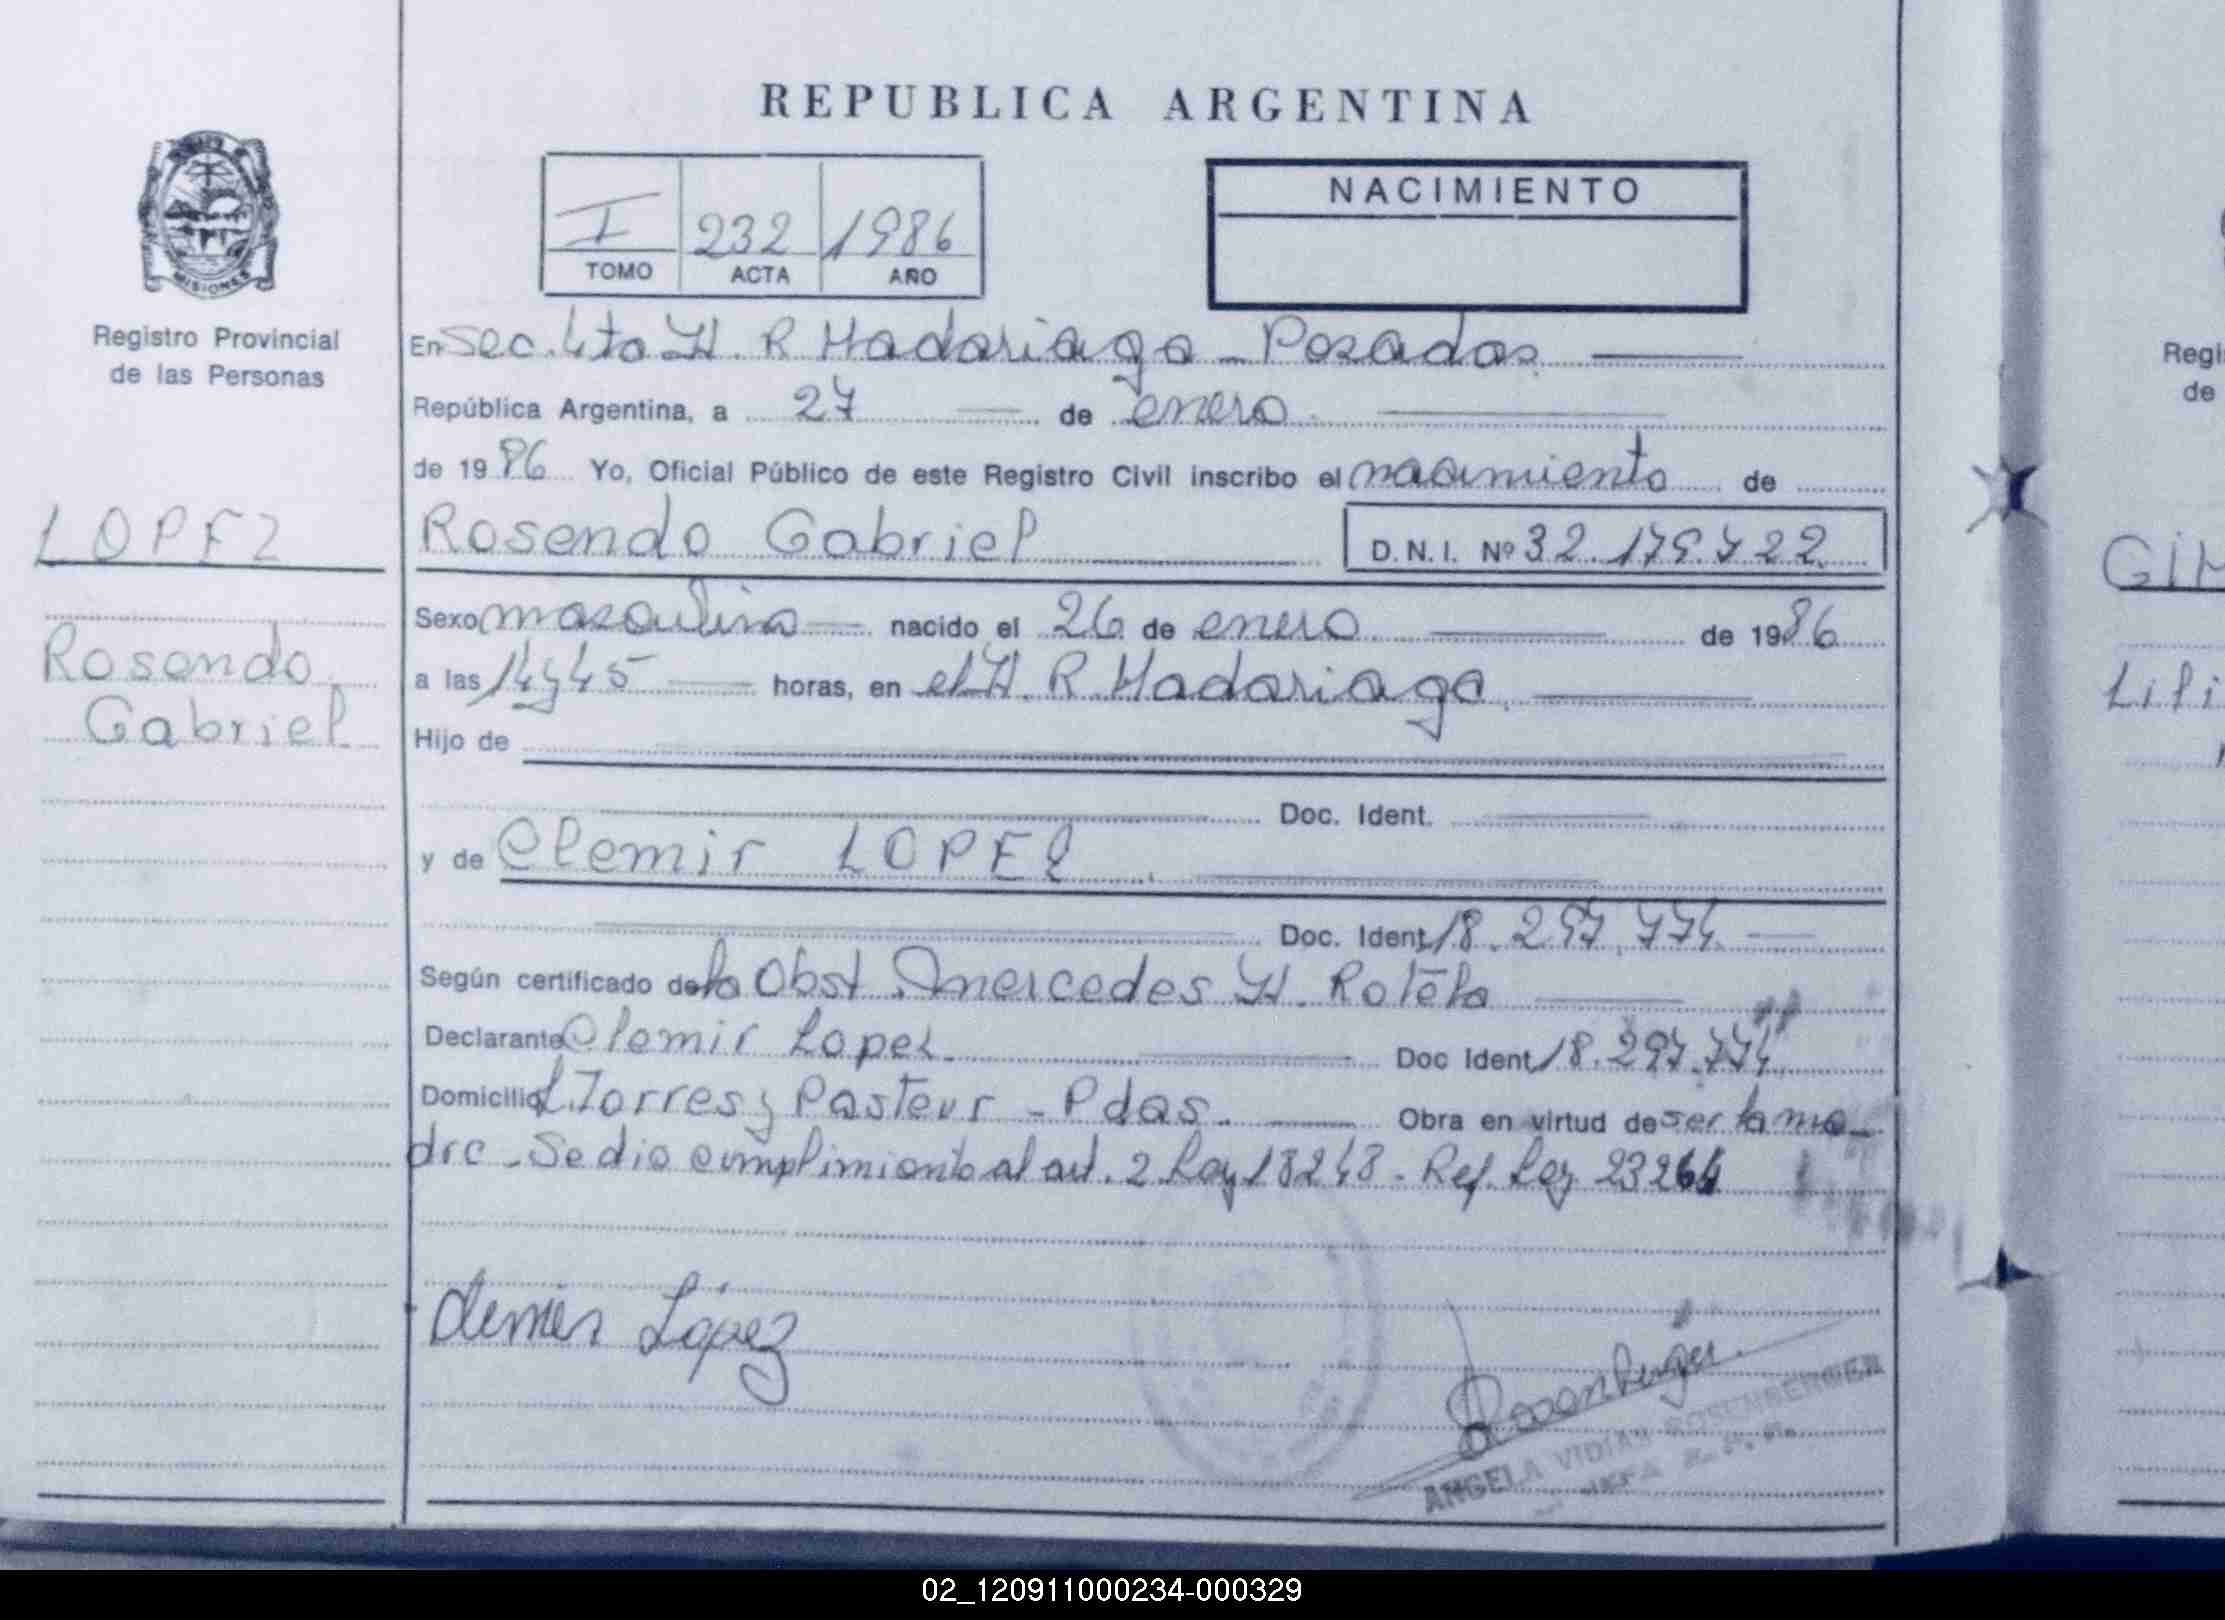 REPUBLICA ARGENTINA
I 232 1986
TOMO ACTA AÑO
NACIMIENTO
MISIONES
Registro Provincial
de las Personas
LOPEZ
Rosendo
Gabriel
En Sec. 4ta H. R Madariaga - Posadas
República Argentina, a 27 de enero
de 1986 Yo, Oficial Público de este Registro Civil inscribo el nacimiento de
Rosendo Gabriel D.N.I. Nº 32.179.722
Sexo masculino nacido el 26 de enero de 1986
a las 14y45 horas, en el H. R Madariaga
Hijo de
Doc. Ident.
y de Clemir LOPEZ
Doc. Ident 18.297.774
Según certificado de la Obst. Mercedes H. Rotela
Declarante Clemir Lopez Doc Ident 18.297.774
Domicilio L. Torres y Pasteur - Pdas. Obra en virtud de ser la ma-
dre - Se dio cumplimiento al art. 2 Ley 18248 - Ref. Ley 23264
López
ANGELA VIDIA ROSENBERGER
JEFA R. P. P.
Regi
de
GIM
Lili
02_120911000234-000329